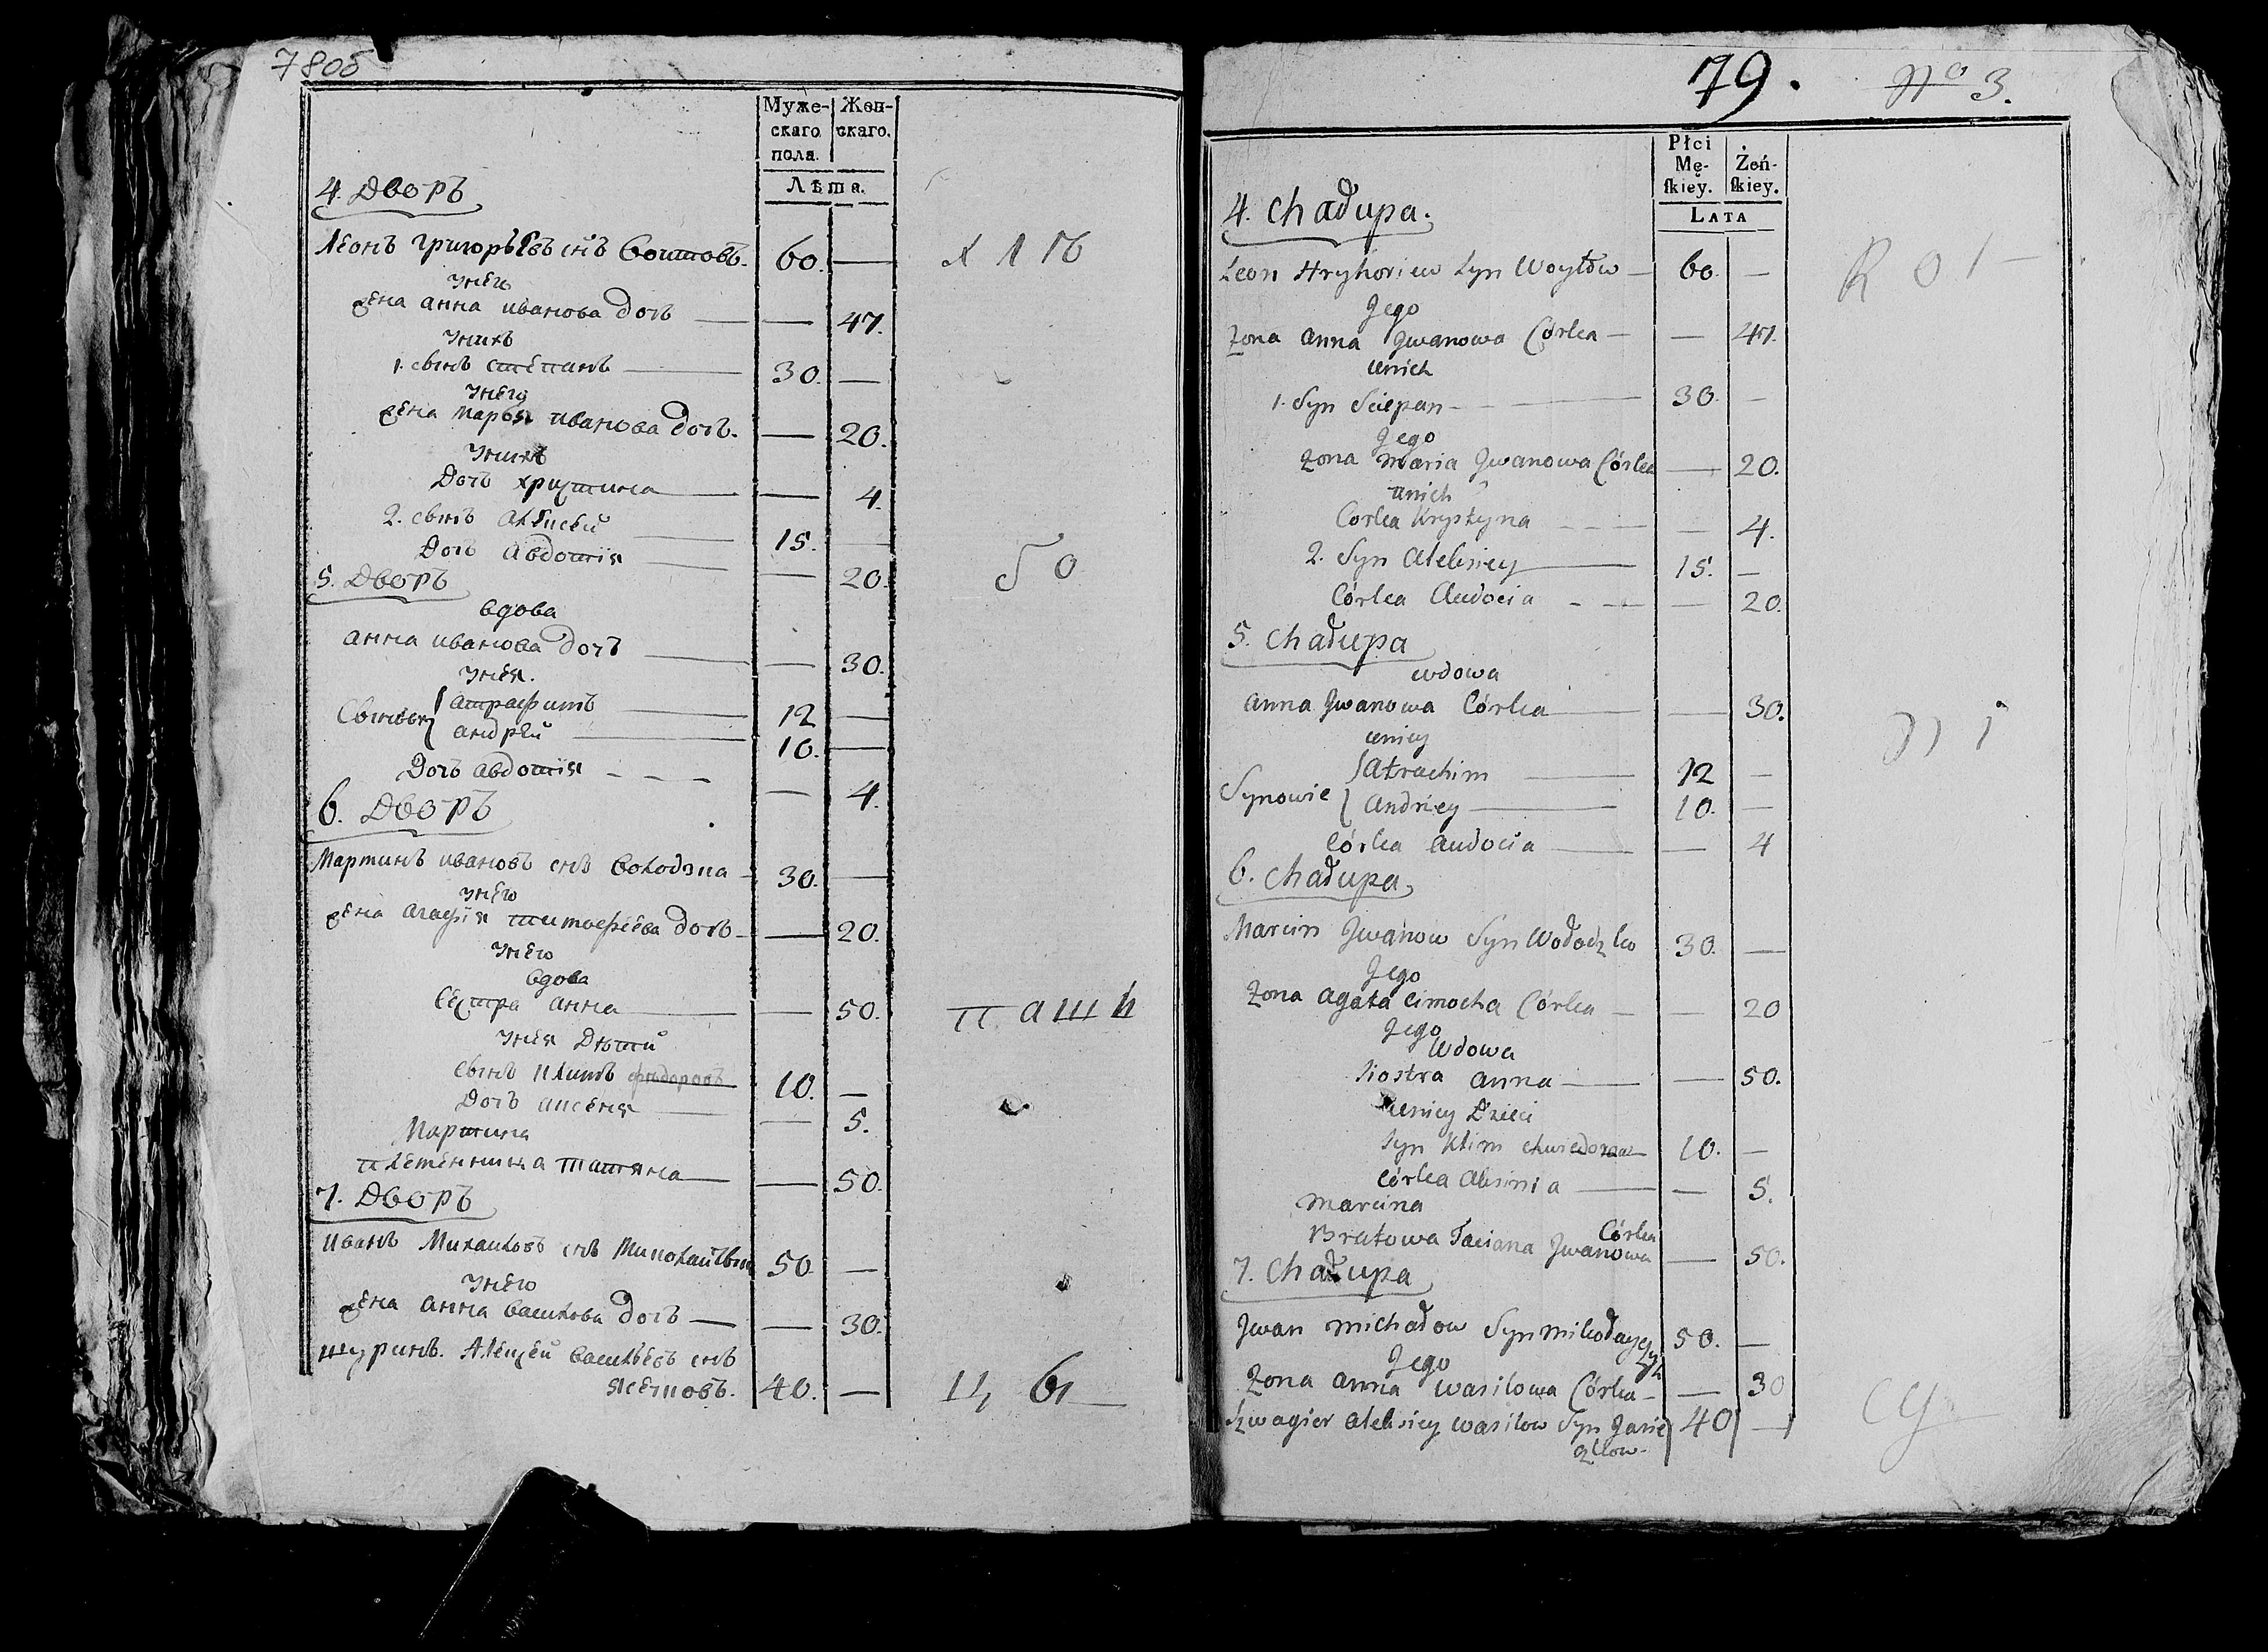 78об
Муже-
скаго
пола.
Жен-
скаго.
Лѣта.
4. Дворъ
Леонъ Григорьевъ снъ Воитовъ. 60. —
У него
жена Анна Иванова дочь — — 47.
У нихъ
1. сынъ Степанъ — 30. —
У него
жена Марья Иванова дочь. — 20.
У нихъ
Дочь Христина — — 4.
2. сынъ Алексей — 15. —
Дочь Авдотія — — 20.
5. Дворъ
вдова
Анна Иванова дочь — — 30.
У нея.
Сыновья Атрафимъ — 12 —
Андрей — 10. —
Дочь Авдотія - - - — 4.
6. Дворъ
Мартинъ Ивановъ снъ Володзка — 30. —
У него
жена Агафія Тимофеева дочь — — 20.
У него
вдова
Сестра Анна — — 50.
У нея дети
Сынъ Климъ Фёдоровъ 10. —
Дочь Аксеня — — 5.
Мартина
племенница Татяна — — 50.
7. Дворъ
Иванъ Михаиловъ снъ 50 —
У него
жена Анна Васильева дочь — — 30.
Шуринъ. Алексей Васильевъ снъ
40. —
79.
No 3.
Płci
Mę-
skiey.
Żeń-
skiey.
LATA
4. Chałupa.
Leon Hryhoriew Syn Woytow — 60. —
Jego
Zona Anna Jwanowa Córka — — 47.
unich
1. Syn Sciepan - — 30. —
Jego
Zona Maria Jwanowa Córka — 20.
unich
Corka Krystyna - - — — 4.
2. Syn Alexiey — 15. —
Córka Audocia - - — — 20.
5. Chałupa
wdowa
Anna Jwanowa Córka — — 30.
uniey
Synowie Atrachim — 12 —
Andriey — 10. —
Córka Audocia — — 4
6. Chałupa
Marcin Jwanow Syn Wołodzko 30. —
Jego
Zona Agata Cimocha Córka — — 20
Jego
Wdowa
Siostra Anna — — 50.
uniey Dzieci
Syn Klim Chwiedorow 10. —
Córka Aksinia — — 5.
Marcina
Córka
Bratowa Taciana Jwanowa — 50.
7. Chałupa
Jwan Michałow Syn 50. —
Jego
Zona Anna Wasilowa Córka — — 30
Szwagier Alexiey Wasilow Syn 40 —